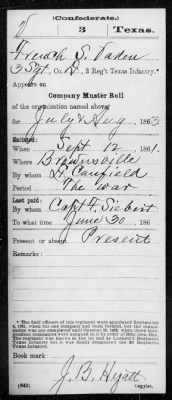 (Confederate.)
V 3 Texas.
French S. Vaden
3 Sgt, Co. D, 3 Reg't Texas Infantry.*
Appears on
Company Muster Roll
of the organization named above
for July & Aug, 1863
Enlisted:
When Sept 12, 1861.
Where Brownsville
By whom Lt. Canfield
Period The war
Last paid:
By whom Capt F. Siebert
To what time June 30, 186
Present or absent Present
Remarks:
Book mark:
J. B. Hyatt
(642) Copyist.